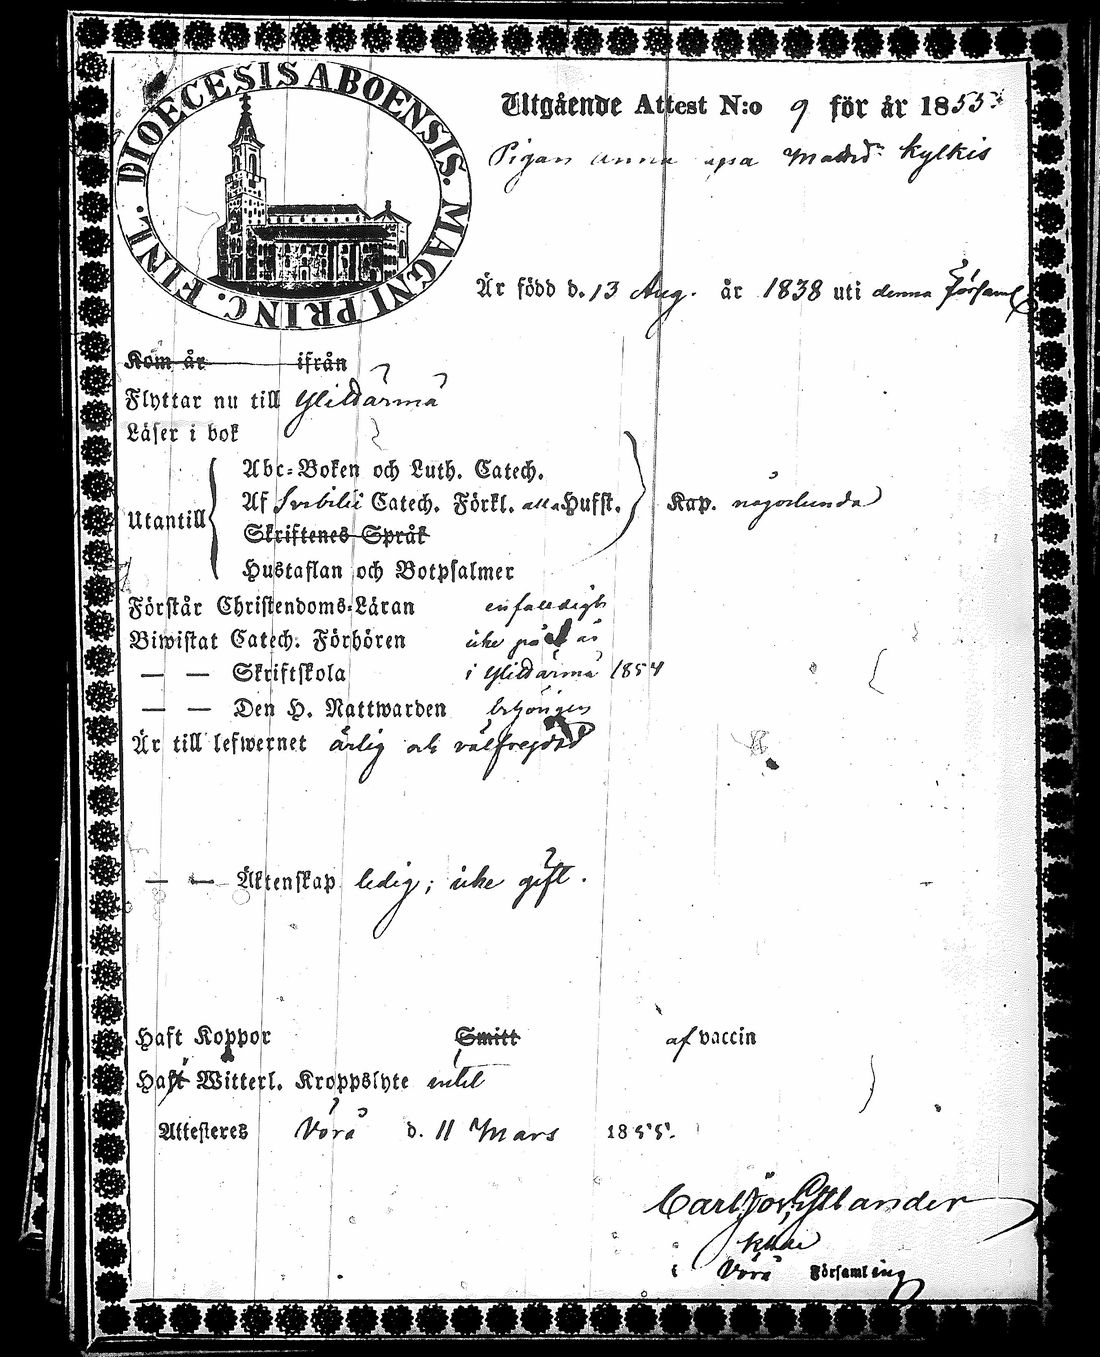 DIOECESIS ABOENSIS. MAGNI PRINC. FINL.
Utgående Attest N:o 9 för år 1855
Pigan Anna Mattsd: Kylkis
Är född d. 13 Aug. år 1838 uti denna Församl
Kom år ifrån
Flyttar nu till Ylihärmä
Läser i bok
Abc-Boken och Luth. Catech.
Utantill
Af Svebilii Catech. Förkl. alla Hufst. Kap. någorlunda
Skriftenes Språk
Hustaflan och Botpsalmer
Förstår Christendoms-Läran enfaldigt
Biwistat Catech. Förhören icke på år
— — Skriftskola i Ylihärmä 1854
— — Den H. Nattwarden behörigen
Är till lefwernet ärlig och välfrejdad
— — Äktenskap ledig; icke gift.
Haft Koppor Smitt af vaccin
Haft Witterl. Kroppslyte intet
Attesteres Vörå d. 11 Mars 1855.
Carl Estlander
i Vörå Församling